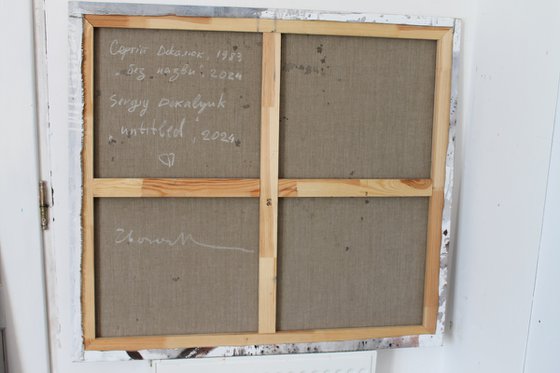 Сергій Декалюк, 1983
"без назви". 2024
Sergiy Dekalyuk
"untitled", 2024